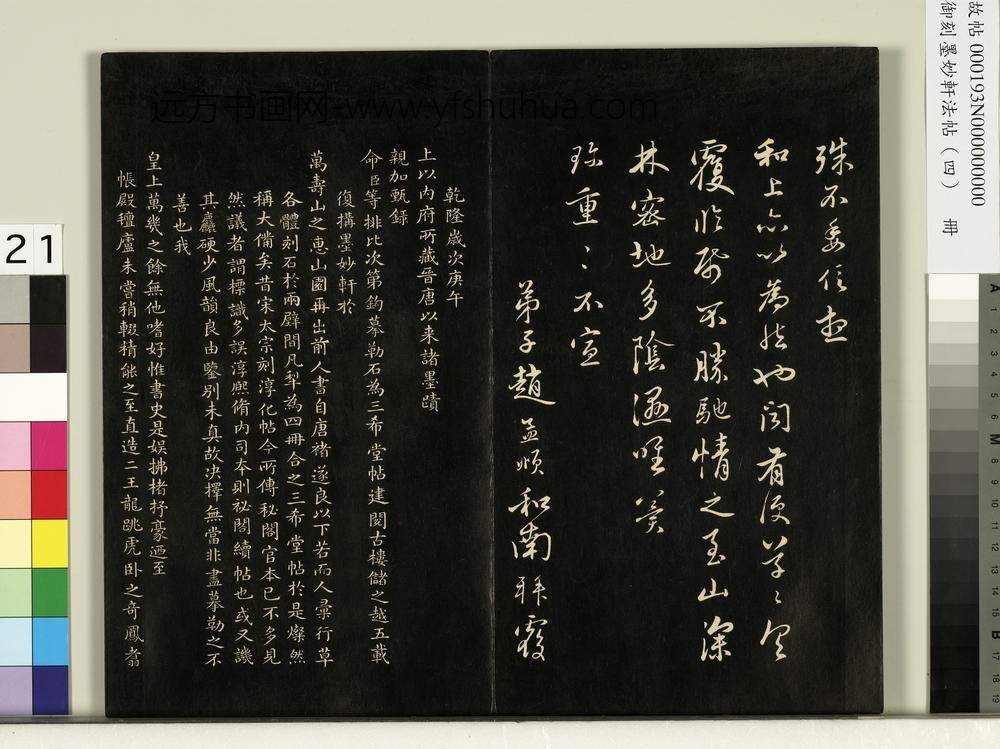 故帖 000193N000000000
御刻墨妙軒法帖（四） 冊
远方书画网-www.yfshuhua.com
殊不委信也
和上亦以為然也聞有便草草奉
覆临纸不勝馳情之至山深
林密地多陰濕唯冀
珍重〻不宣
弟子趙孟頫和南拜覆
乾隆歲次庚午
上以内府所藏晉唐以来諸墨蹟
親加甄録
命臣等排比次第鈎摹勒石為三希堂帖建閱古樓儲之越五載
復搆墨妙軒於
萬壽山之惠山園再出前人書自唐褚遂良以下若而人彙行草
各體刻石於兩壁間凡犁為四冊合之三希堂帖於是燦然
稱大備矣昔宋太宗刻淳化帖今所傳秘閣官本已不多見
然議者謂標識多誤淳熙脩内司本則祕閣續帖也或又譏
其麤硬少風韻良由鑒別未真故决擇無當非盡摹勒之不
善也我
皇上萬幾之餘無他嗜好惟書史是娱拂楮抒豪迺至
帳殿氊廬未嘗稍輟精能之至直造二王龍跳虎卧之奇鳳翥
21
A 1 2 3 4 5 6 M 8 9 10 11 12 13 14 15 B 17 18 19